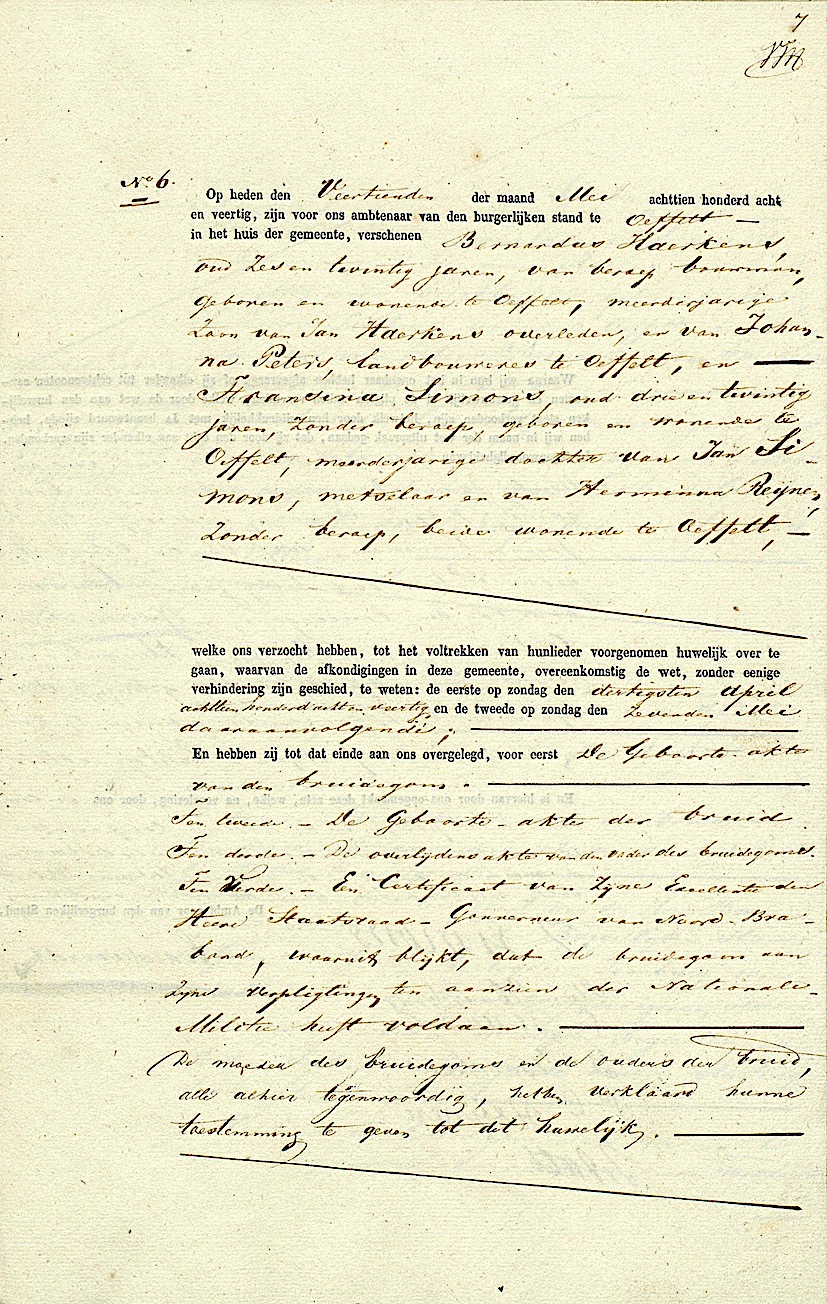 7
No 6.
Op heden den Veertienden der maand Mei achttien honderd acht
en veertig, zijn voor ons ambtenaar van den burgerlijken stand te Oeffelt —
in het huis der gemeente, verschenen Bernardus Haerkens,
oud Zes en twintig jaren, van beroep bouwman,
geboren en wonende te Oeffelt, meerderjarige
Zoon van Jan Haerkens overleden, en van Johan-
na Peters, landbouweres te Oeffelt, en —
Fransina Simons, oud drie en twintig
jaren, Zonder beroep, geboren en wonende te
Oeffelt, meerderjarige dochter van Jan Si-
mons, metselaar en van Hermina Reijnen,
Zonder beroep, beide wonende te Oeffelt, —
welke ons verzocht hebben, tot het voltrekken van hunlieder voorgenomen huwelijk over te
gaan, waarvan de afkondigingen in deze gemeente, overeenkomstig de wet, zonder eenige
verhindering zijn geschied, te weten: de eerste op zondag den dertigsten April
achttien honderd acht en veertig en de tweede op zondag den Zevenden Mei
daaraanvolgende; —
En hebben zij tot dat einde aan ons overgelegd, voor eerst De Geboorte-akte
van den bruidegom. —
Ten tweede. — De Geboorte-akte der bruid
Ten derde. — De overlijdens akte van den vader des bruidegoms.
Ten Vierde. — Een Certificaat van Zijne Excellentie den
Heere Staatsraad-Gouverneur van Noord-Bra-
band, waaruit blijkt, dat de bruidegom aan
Zijne Verpligtingen ten aanzien der Nationale-
Militie heeft voldaan. —
De moeder des bruidegoms en de ouders der bruid,
alle alhier tegenwoordig, hebben verklaard hunne
toestemming te geven tot dit huwelijk. —